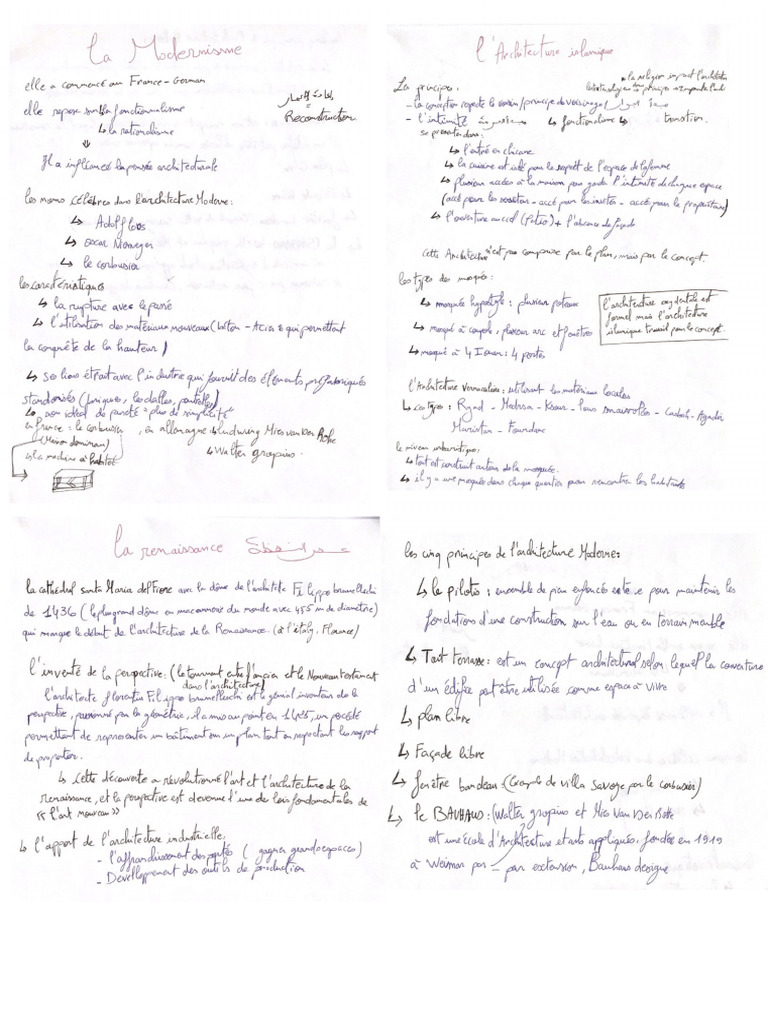 La Modernisme
elle a commencé au France-German
elle repose sur la fonctionnalisme
إعادة الإعمار
=
Reconstruction
↳ la rationalisme
⇓
Il a influencé la pensée architecturale
les noms célèbres dans l'architecture Moderne:
↳ Adolf loos
↳ oscar Niemeyer
↳ le corbusier
les caractéristiques
↳ la rupture avec le passé
↳ l'utilisation des matériaux nouveaux (béton - Acier & qui permettant
la conquête de la hauteur)
↳ ses liens étroit avec l'industrie qui fournit des éléments préfabriqués
standarisés (briques, les dalles, poutrelles)
↳ son idéal de pureté "plus de simplicité"
en France: le corbusier, en allemagne: ludwing Mies van der Rohe
(Maison dominan)
↳ Walter gropius.
la machine à habitét
l'Architecture islamique
la religion impact l'architecture
La principe:
- la conception respecte le voisin/principe de voisinage/
- l'intimité ↳ fonctionalisme ↳ transition.
se présenter dans:
↳ l'entré en chicane
↳ la cuisine est isolé pour le respect de l'espace de la femme
↳ plusieur accées à la maison pour garde l'intimité de chaque espace
(accé pour les - accé pour les invités - accé pour le propriétaire)
↳ l'ouverture au ciel (patio) + l'absence de façade
cette Architecture n'est pas composée par le plan, mais par le concept.
les types des mosquée:
↳ mosquée hypostyle: plusieur poteaux
↳ mosqué à coupole, plusieur arc et fenêtres
↳ mosqué à 4 Iwan: 4 portes
l'architecture occidentale est
formel mais l'architecture
islamique travail par le concept.
l'Architecture Vernaculaire: utilisant les matériaux locales
↳ ces types: Ryad - Medrsa - Ksour - - Casbah - Agadir
Maristan - Foundouc
le niveau urbanistique:
↳ tout est construit autour de la mosquée.
↳ il y a une mosquée dans chaque quartier pour rencontrer les habitants
la renaissance عصر النهضة
la cathédral santa Maria del Fiore avec la dôme de l'architecte Filippo brunelleschi
de 1436 (le plus grand dôme en maconnerie du monde avec 45,5 m de diamètre)
qui marque le début de l'architecture de la Renaissance. (à l'italy, Florence)
L'inventé de la perspective: (le tournant entre l'ancien et le Nouveau testament
dans l'architecture)
l'architecte florentin Filippo brunelleschi est le génial inventeur de la
perspective, passionné par la géométrie, il a mis au point en 1415, un procédé
permettant de représenter un bâtiment ou un plan tout en respectant les rapport
de proportion.
↳ Cette découverte a révolutionné l'art et l'architecture de la
renaissance, et la perspective est devenue l'une de lois fondamentales de
« l'art nouveau »
↳ l'apport de l'architecture industrielle:
- l'affranchissement des portés (gagner grand espaces)
- Développement des outils de production
les cinq principes de l'architecture Moderne:
↳ le pilotis: ensemble de pieu enfoncé en terre pour maintenir les
fondations d'une construction sur l'eau ou en terrain meuble
↳ Toit terrasse: est un concept architectural selon lequel la couverture
d'un édifice peut être utilisée comme espace à vivre
↳ plan libre
↳ Façade libre
↳ fenêtre bandeau (Exemple de villa savoye par le corbusier)
↳ le BAUHAUS: (Walter gropius et Mies Van Der Rohe
est une école d'Architecture et arts appliqués, fondée en 1919
à Weimar par _ par extension, Bauhaus désigne